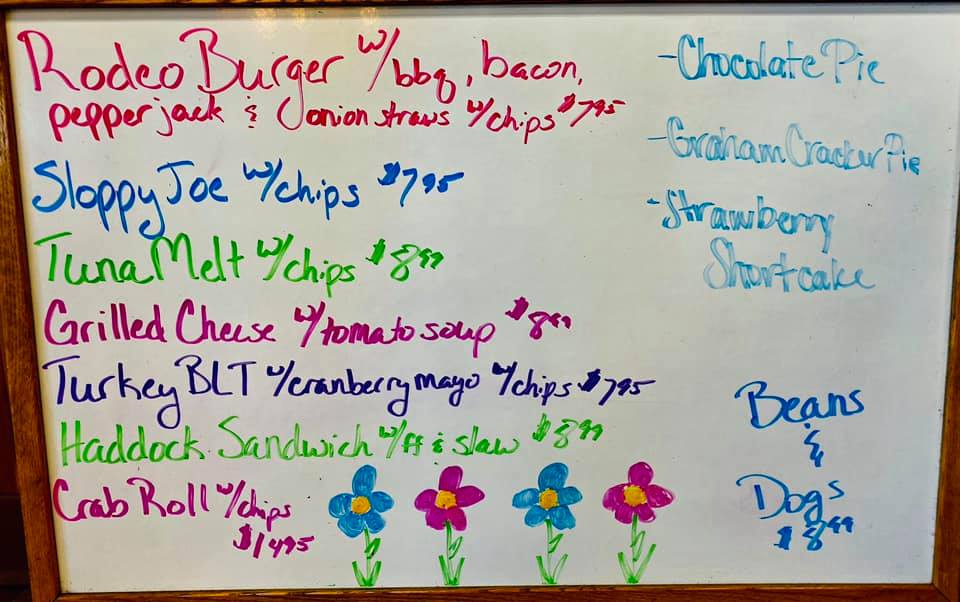 Rodeo Burger w/ bbq, bacon,
pepperjack & onion straws w/chips $7.95
Sloppy Joe w/chips $7.95
Tuna Melt w/chips $8.99
Grilled Cheese w/tomato soup $8.99
Turkey BLT w/cranberry mayo w/chips $7.95
Haddock Sandwich w/ff & slaw $8.99
Crab Roll w/chips
$14.95
-Chocolate Pie
-Graham Cracker Pie
-Strawberry
Shortcake
Beans
&
Dogs
$8.99